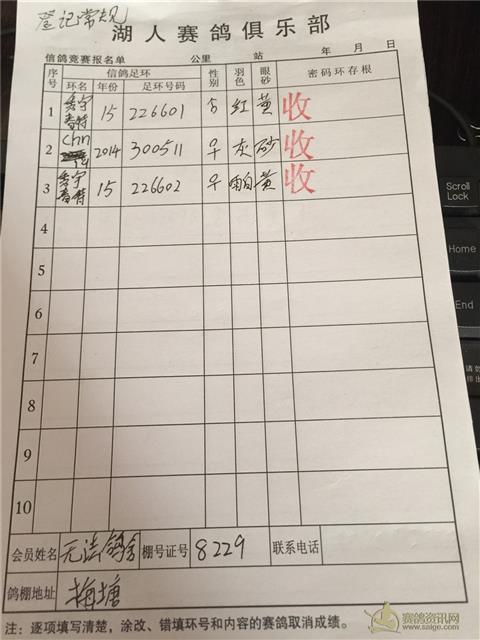 登记常规
湖人赛鸽俱乐部
信鸽竞赛报名单 公里 站 年 月 日
序号 信鸽足环 性别 羽色 眼砂 密码环存根
环名 年份 足环号码
1 15 226601 红 黄 收
2 chn 2014 300511 ♀ 灰 砂 收
3 15 226602 ♀ 黄 收
4
5
6
7
8
9
10
会员姓名 无法鸽舍 棚号证号 8229 联系电话
鸽棚地址 梅塘
注：逐项填写清楚，涂改、错填环号和内容的赛鸽取消成绩。
Scroll Lock
Home
End
赛鸽资讯网
www.saige.com